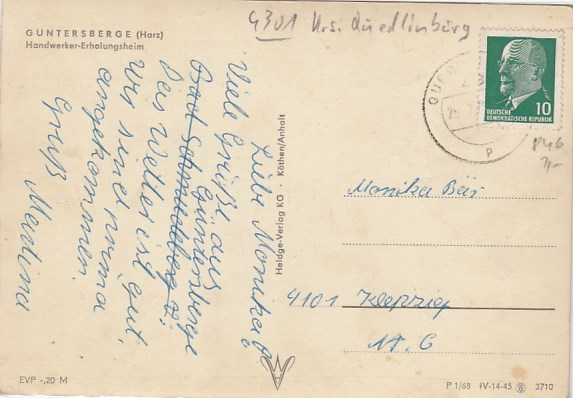 4301 Krs. Quedlinburg
GUNTERSBERGE (Harz)
Handwerker-Erholungsheim
DEUTSCHE
DEMOKRATISCHE REPUBLIK
10
P
Liebe Monika!
Viele Grüße aus
Güntersberge
Bad
Das Wetter ist gut.
Wir sind prima
angekommen.
Gruß Martina
Heldge-Verlag KG · Köthen/Anhalt
Monika Bär
4101 Klepzig
Nr. 6
EVP -,20 M
P 1/68 IV-14-45 3710